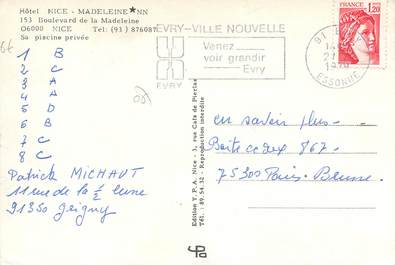 Hôtel NICE - MADELEINE★NN
153 Boulevard de la Madeleine
06000 NICE Tel: (93) 876087
Sa piscine privée
EVRY-VILLE NOUVELLE
Venez
voir grandir
Evry
EVRY
91
ESSONNE
FRANCE
1,20
66
1 B
2 C
3 A
4 A
5 D
6 B
7 C
8 C
Patrick MICHAUT
11 rue de la 1/2 lune
91350 Grigny
Edition T.P.A. Nice - 3, rue Cals de Pierlas
Tél.: 89.54.32 - Reproduction interdite
en savoir plus-
Boite cedex 867-
75300 Paris-Brune.